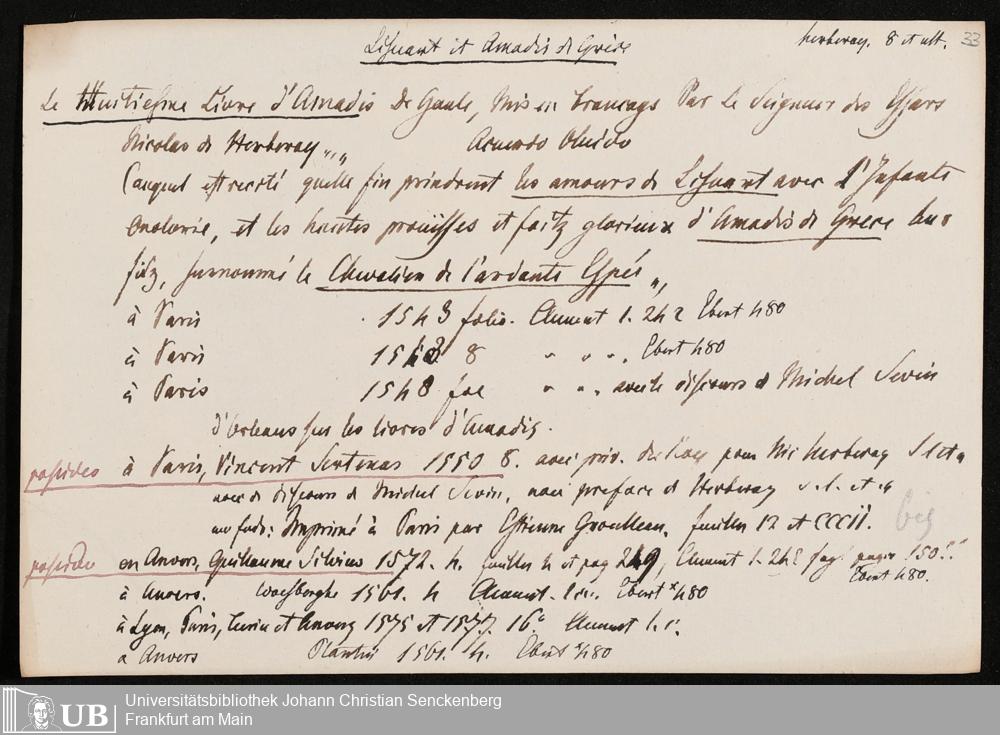 Lisuart et Amadis de Grèce
herberay. 8 et ult. 33
Le Huitiesme Livre d'Amadis de Gaule, Mis en francays Par le Seigneur des Essars
Nicolas de Herberay „ „ Acuerdo Oluido
Auquel est recité quelle fin prindrent les amours de Lisuart avec l'Infante
Onolorie, et les haultes prouësses et faitz glorieux d'Amadis de Grece leur
filz, surnommé le Chevalier de l'ardante Espée „
à Paris 1543 folio. Clement 1. 242 Ebert 480
à Paris 1548 8 " " ". Ebert 480
à Paris 1548 fol " " " avec le discours d Michel Sevin
d'Orleans sur les livres d'Amadis.
possideo à Paris, Vincent Sertenas 1550 8. avec priv. pour Nic herberay
avec discours d Michel Sevin, avec preface d Herberay
Imprimé à Paris par Estienne Groulleau. feuilles 12 et CCCII. bis
possideo en Anvers, Guillaume Silvius 1572. 4. feuilles 4 et pag 249, Clement 1. 242
Ebert 480.
à Anvers. Waesberghe 1561. 4 Clement. Ebert 480
à Lyon, Paris, Turin et Anvers 1575 et 1577. 16° Clement l. c.
a Anvers Plantin 1561. 4. Ebert 480
UB
Universitätsbibliothek Johann Christian Senckenberg
Frankfurt am Main